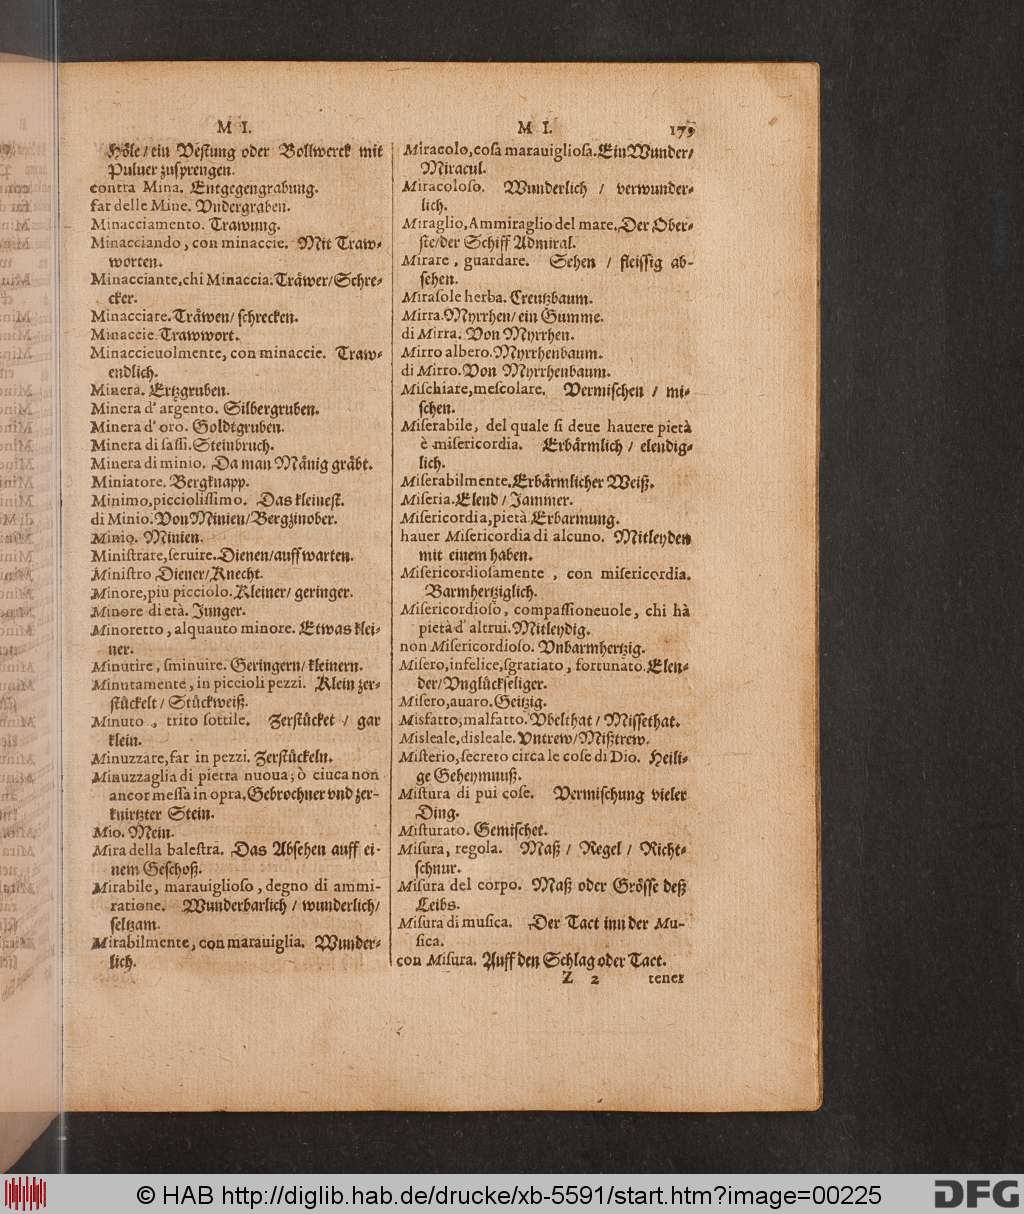 M I.
Höle / ein Vestung oder Bollwerck mit
Puluer zusprengen.
contra Mina. Entgegengrabung.
far delle Mine. Vndergraben.
Minacciamento. Trawung.
Minacciando, con minaccie. Mit Traw-
worten.
Minacciante, chi Minaccia. Träwer/Schre-
cker.
Minacciare. Träwen/ schrecken.
Minaccie. Trawwort.
Minaccieuolmente, con minaccie. Traw-
endlich.
Minera. Ertzgruben.
Minera d'argento. Silbergruben.
Minera d'oro. Goldtgruben.
Minera di saſsi. Steinbruch.
Minera di minio. Da man Mänig gräbt.
Miniatore. Bergknapp.
Minimo, piccioliſsimo. Das kleinest.
di Minio. Von Minien/Bergzinober.
Minio. Minien.
Miniſtrare, ſeruire. Dienen/auffwarten.
Miniſtro Diener/Knecht.
Minore, piu picciolo. Kleiner/ geringer.
Minore di età. Junger.
Minoretto, alquauto minore. Etwas klei-
ner.
Minutire, ſminuire. Geringern/ kleinern.
Minutamente, in piccioli pezzi. Klein zer-
ſtückelt / Stückweiß.
Minuto, trito ſottile. Zerſtücket / gar
klein.
Minuzzare, far in pezzi. Zerſtückeln.
Minuzzaglia di pietra nuoua; ò ciuca non
ancor meſſa in opra. Gebrochner vnd zer-
knirtzter Stein.
Mio. Mein.
Mira della baleſtra. Das Abſehen auff ei-
nem Geſchoß.
Mirabile, marauiglioſo, degno di ammi-
ratione. Wunderbarlich / wunderlich/
ſeltzam.
Mirabilmente, con marauiglia. Wunder-
lich.
M I. 179
Miracolo, coſa marauiglioſa. Ein Wunder/
Miracul.
Miracoloſo. Wunderlich / verwunder-
lich.
Miraglio, Ammiraglio del mare. Der Ober-
ſte/der Schiff Admiral.
Mirare, guardare. Sehen / fleiſſig ab-
ſehen.
Miraſole herba. Creutzbaum.
Mirra. Myrrhen/ ein Gumme.
di Mirra. Von Myrrhen.
Mirro albero. Myrrhenbaum.
di Mirro. Von Myrrhenbaum.
Miſchiare, meſcolare. Vermiſchen / mi-
ſchen.
Miſerabile, del quale ſi deue hauere pietà
è miſericordia. Erbärmlich / elendig-
lich.
Miſerabilmente. Erbärmlicher Weiß.
Miſeria. Elend / Jammer.
Miſericordia, pietà. Erbarmung.
hauer Miſericordia di alcuno. Mitleyden
mit einem haben.
Miſericordioſamente, con miſericordia.
Barmhertziglich.
Miſericordioſo, compaſſioneuole, chi hà
pietà d'altrui. Mitleydig.
non Miſericordioſo. Vnbarmhertzig.
Miſero, infelice, ſgratiato, fortunato. Elen-
der/Vnglückſeliger.
Miſero, auaro. Geitzig.
Misfatto, malfatto. Vbelthat / Miſſethat.
Misleale, disleale. Vntrew/Mißtrew.
Miſterio, ſecreto circa le coſe di Dio. Heili-
ge Geheymnuß.
Miſtura di pui coſe. Vermiſchung vieler
Ding.
Miſturato. Gemiſchet.
Miſura, regola. Maß / Regel / Richt-
ſchnur.
Miſura del corpo. Maß oder Gröſſe deß
Leibs.
Miſura di muſica. Der Tact inn der Mu-
ſica.
con Miſura. Auff den Schlag oder Tact.
Z 2 tener
© HAB http://diglib.hab.de/drucke/xb-5591/start.htm?image=00225
DFG